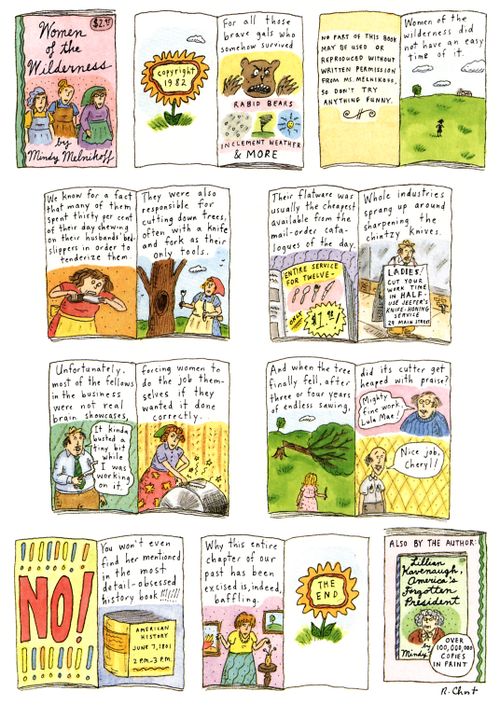 $2.95
Women
of the
Wilderness
by
Mindy Melnikoff
copyright
1982
For all those
brave gals who
somehow survived
RABID BEARS
INCLEMENT WEATHER
& MORE
NO PART OF THIS BOOK
MAY BE USED OR
REPRODUCED WITHOUT
WRITTEN PERMISSION
FROM MS. MELNIKOFF,
SO DON'T TRY
ANYTHING FUNNY.
Women of the
wilderness did
not have an easy
time of it.
We know for a fact
that many of them
spent thirty per cent
of their day chewing
on their husbands' bed-
slippers in order to
tenderize them.
They were also
responsible for
cutting down trees,
often with a knife
and fork as their
only tools.
Their flatware was
usually the cheapest
available from the
mail-order cata-
logues of the day.
ENTIRE SERVICE
FOR TWELVE-
ONLY
Whole industries
sprang up around
sharpening the
chintzy knives.
LADIES:
CUT YOUR
WORK TIME
IN HALF.
USE JEETER'S
KNIFE-HONING
SERVICE
20 MAIN STREET
Unfortunately,
most of the fellows
in the business
were not real
brain showcases,
It kinda
busted a
tiny bit
while
I was
working
on it.
forcing women to
do the job them-
selves if they
wanted it done
correctly.
And when the tree
finally fell, after
three or four years
of endless sawing,
did its cutter get
heaped with praise?
Mighty
fine work,
Lula Mae!
Nice job,
Cheryl!
NO!
You won't even
find her mentioned
in the most
detail-obsessed
history book!!!!!!
AMERICAN
HISTORY
JUNE 7, 1801
2 P.M.-3 P.M.
Why this entire
chapter of our
past has been
excised is, indeed,
baffling.
THE
END
ALSO BY THE AUTHOR:
Lillian
Kavenaugh,
America's
Forgotten
President
by
Mindy
OVER
100,000,000
COPIES
IN PRINT
R. Chast